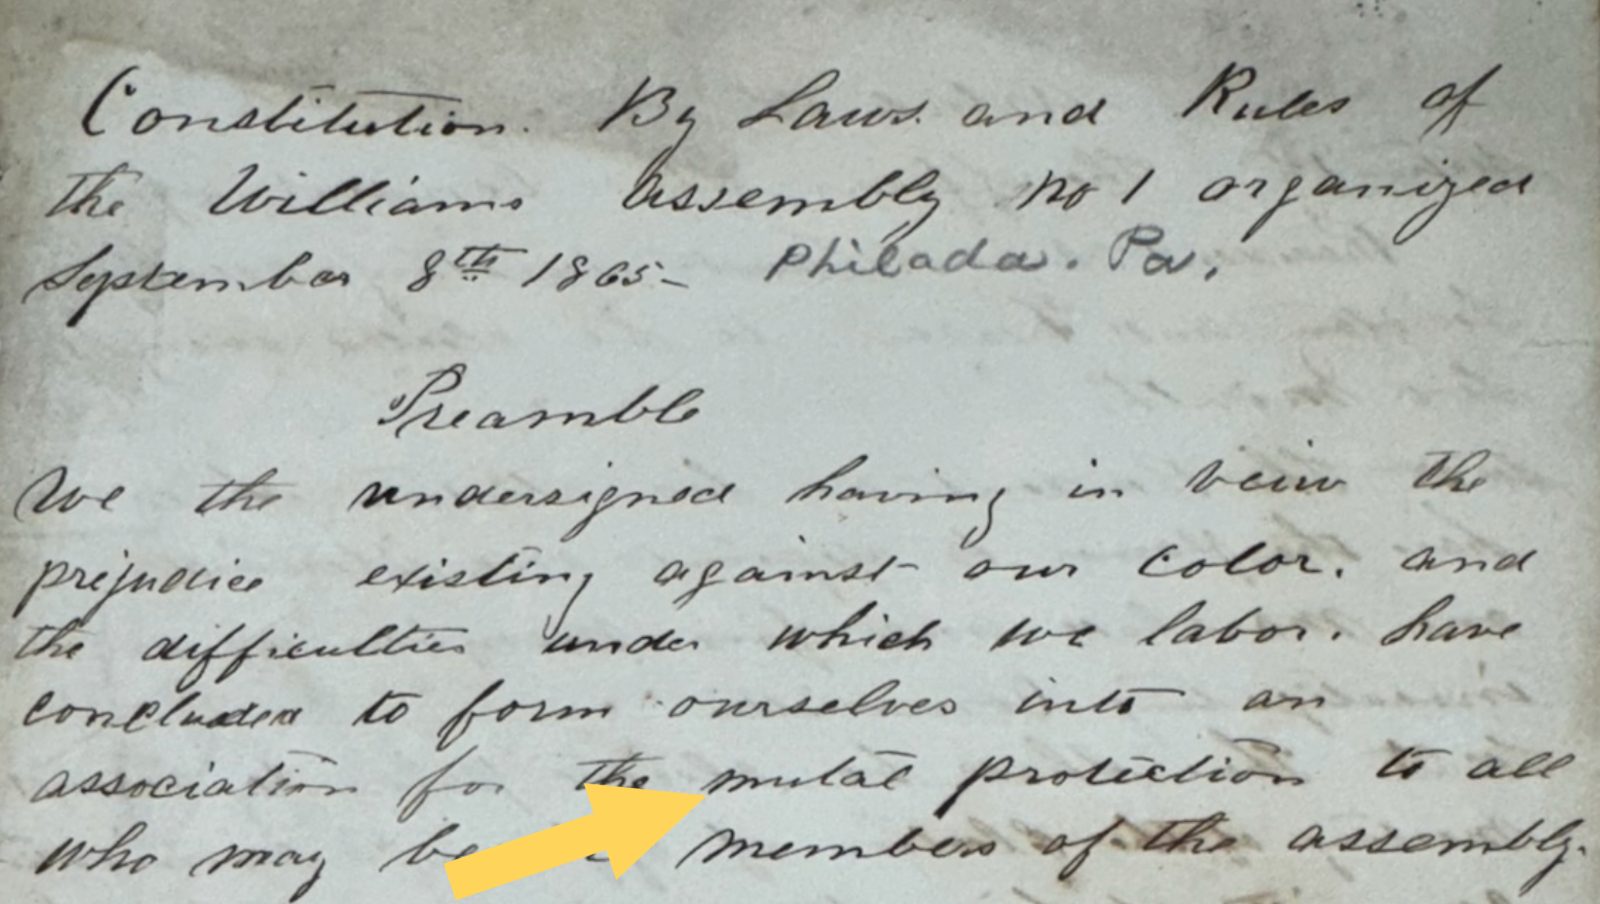 Constitution. By Laws. and Rules of
the Williams Assembly No 1 organized
September 8th 1865- Philada. Pa.
Preamble
We the undersigned having in veiw the
prejudice existing against our color. and
the difficulties under which we labor. have
concluded to form ourselves into an
association for the mutal protection to all
who may members of the assembly.